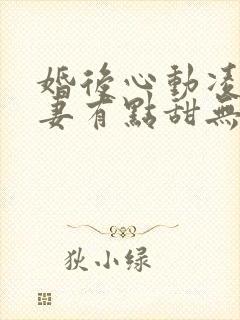 婚後心動凌
妻有點甜無
狄小绿